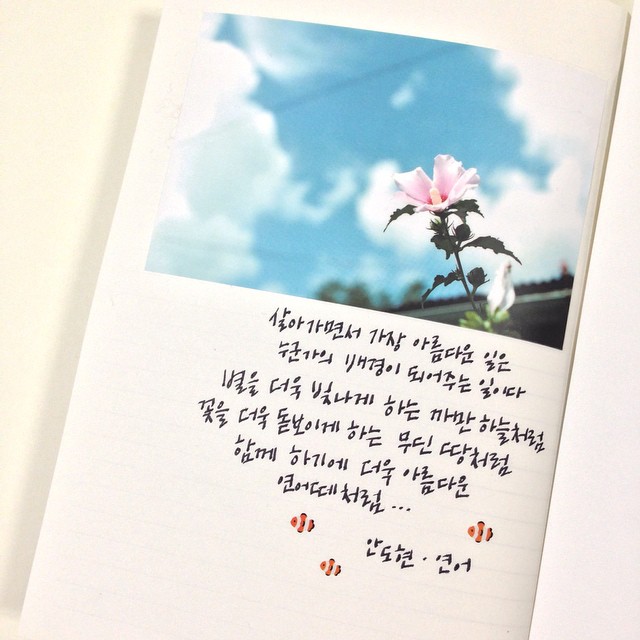 살아가면서 가장 아름다운 일은
누군가의 배경이 되어주는 일이다
별을 더욱 빛나게 하는 까만 하늘처럼
꽃을 더욱 돋보이게 하는 무딘 땅처럼
함께 하기에 더욱 아름다운
연어떼처럼...
안도현·연어